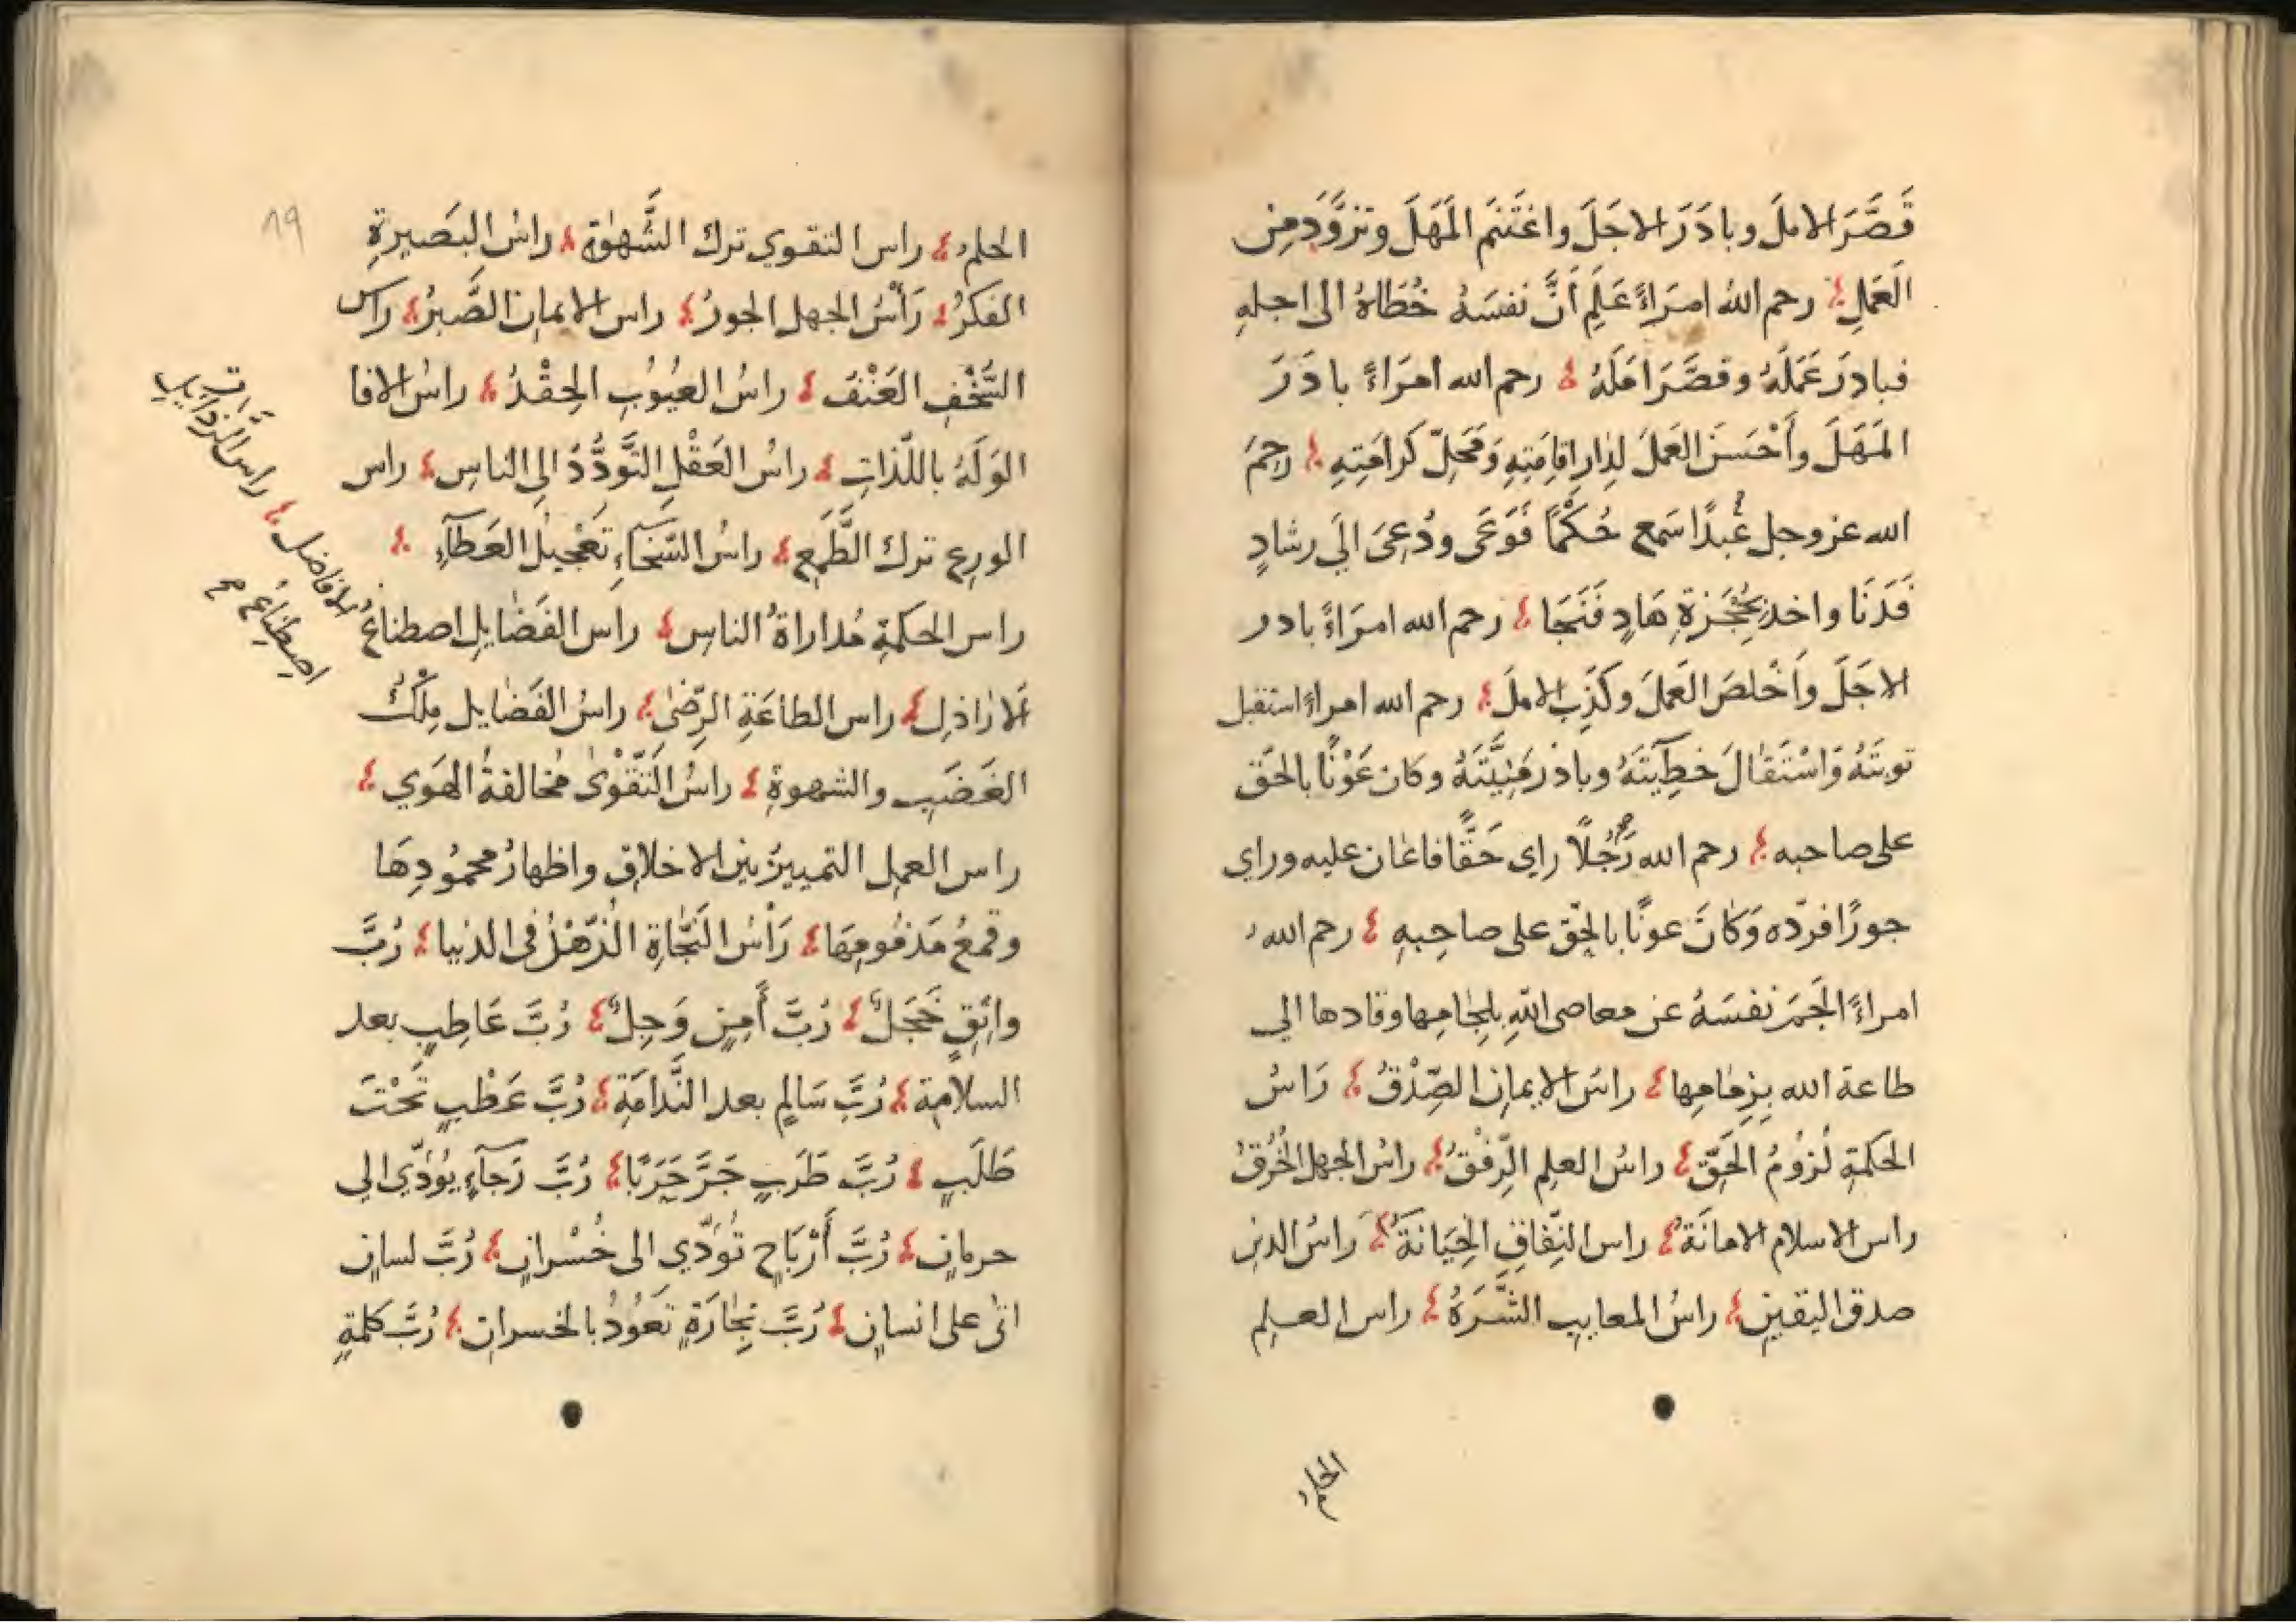 قَصَّرَ الامَلَ وبادَرَ الاجَلَ واغتَنَم المَهَلَ وتزوَّدَ مِن
العَمَلِ رحم اللهُ امرَاءً عَلِمَ أَنَّ نفسَهُ خُطَاهُ الى اجلهِ
فبادرَ عَمَلَهُ وقصَّرَ امَلَهُ رحم الله امرَاءً بادَرَ
المَهَلَ وأَحْسَنَ العَمَلَ لِدَارِ اقامَتِهِ وَمَحَلِّ كَرامَتِهِ رحِمَ
الله عز وجل عَبدًا سَمع حُكْمًا فَوَعَى ودُعِىَ الَي رشادٍ
فَدَنَا واخذ بحُجْزَةِ هَادٍ فَنَجَا رحم الله امرَاءً بادر
الاجَلَ وأَخْلصَ العَمَلَ وكَذَّبَ الامَلَ رحم الله امراءً استقبل
توبتَهُ وَاسْتَقَالَ خطِيَٓتَهُ وبادَر مَنِيَّتَهُ وكان عَوْنًا بالحَق
على صاحبه رحم الله رَجُلًا راي حَقًّا فاعَان عليه وراي
جورًا فردّه وَكَانَ عونًا بالحِق على صاحِبهِ رحم الله
امراءً الجَمَ نفسَهُ عن معاصى اللهِ بلِجامِها وقادها الي
طاعة الله بِزِمَامِها راسُ الايمانِ الصِّدْقُ رَاسُ
الحكمةِ لُزوُمُ الحَقِّ راسُ العلم الرِّفْقُ راسُ الجهل الخُرْقُ
راس الاسلام الامانَةُ راس النِّفاقِ الخِيَانَةُ راسُ الدين
صدق اليقينِ راسُ المعايبِ الشَّرَهُ راس العلم
الحلم
19
الحلمُ راس التقوي ترك الشَّهوٰةِ راسُ البَصيرةِ
الفكرُ رَأسُ الجهل الجورُ راس الايمان الصَّبرُ راس
السُّخْفِ العَنْفُ راسُ العيُوُبِ الحِقْدُ راسُ الافا
الوَلَهُ باللّذاتِ راسُ العَقْلِ التَّودُّدُ الى الناسِ راس
الورع ترك الطَّمَعِ راسُ السّخَآءِ تَعْجيلُ العَطآءِ
راس الحكمةِ مُداراةُ الناسِ راس الفَضَايلِ اصطناعُ
الافاضل راس الرذايل
اصطِناعُ
الاراذلِ راس الطاعَةِ الرِّضىٰ راسُ الفَضايل مِلْكُ
الغَضَبِ والشهوةِ راسُ التَّقْوىٰ مُخالفةُ الهَوي
راس العمِل التمييزُ بين الاخلاقِ واظهارُ محمُودِهَا
وقمعُ مَذمُومِهَا رَأسُ النَّجَاةِ الزُّهْدُ فى الدنيا رُبَّ
واثِقٍ خَجَلٌ رُبَّ أَمِنٍ وَجِلٌ رُبَّ عَاطِبٍ بعد
السلامةِ رُبَّ سَالمٍ بعد النَّدامَةِ رُبَّ عَطْبٍ تَحْتَ
طَلَبٍ رُبَّ طَرَبٍ جَرَّ حَرَبًا رُبَّ رَجآءٍ يؤُدّي الى
حرمانٍ رُبَّ أَرْبَاحٍ تُؤدّي الى خُسْرانٍ رُبَّ لسانٍ
اتىٰ على انسانٍ رُبَّ تجَارَةٍ تَعوُدُ بالخسران رُبَّ كلمةٍ